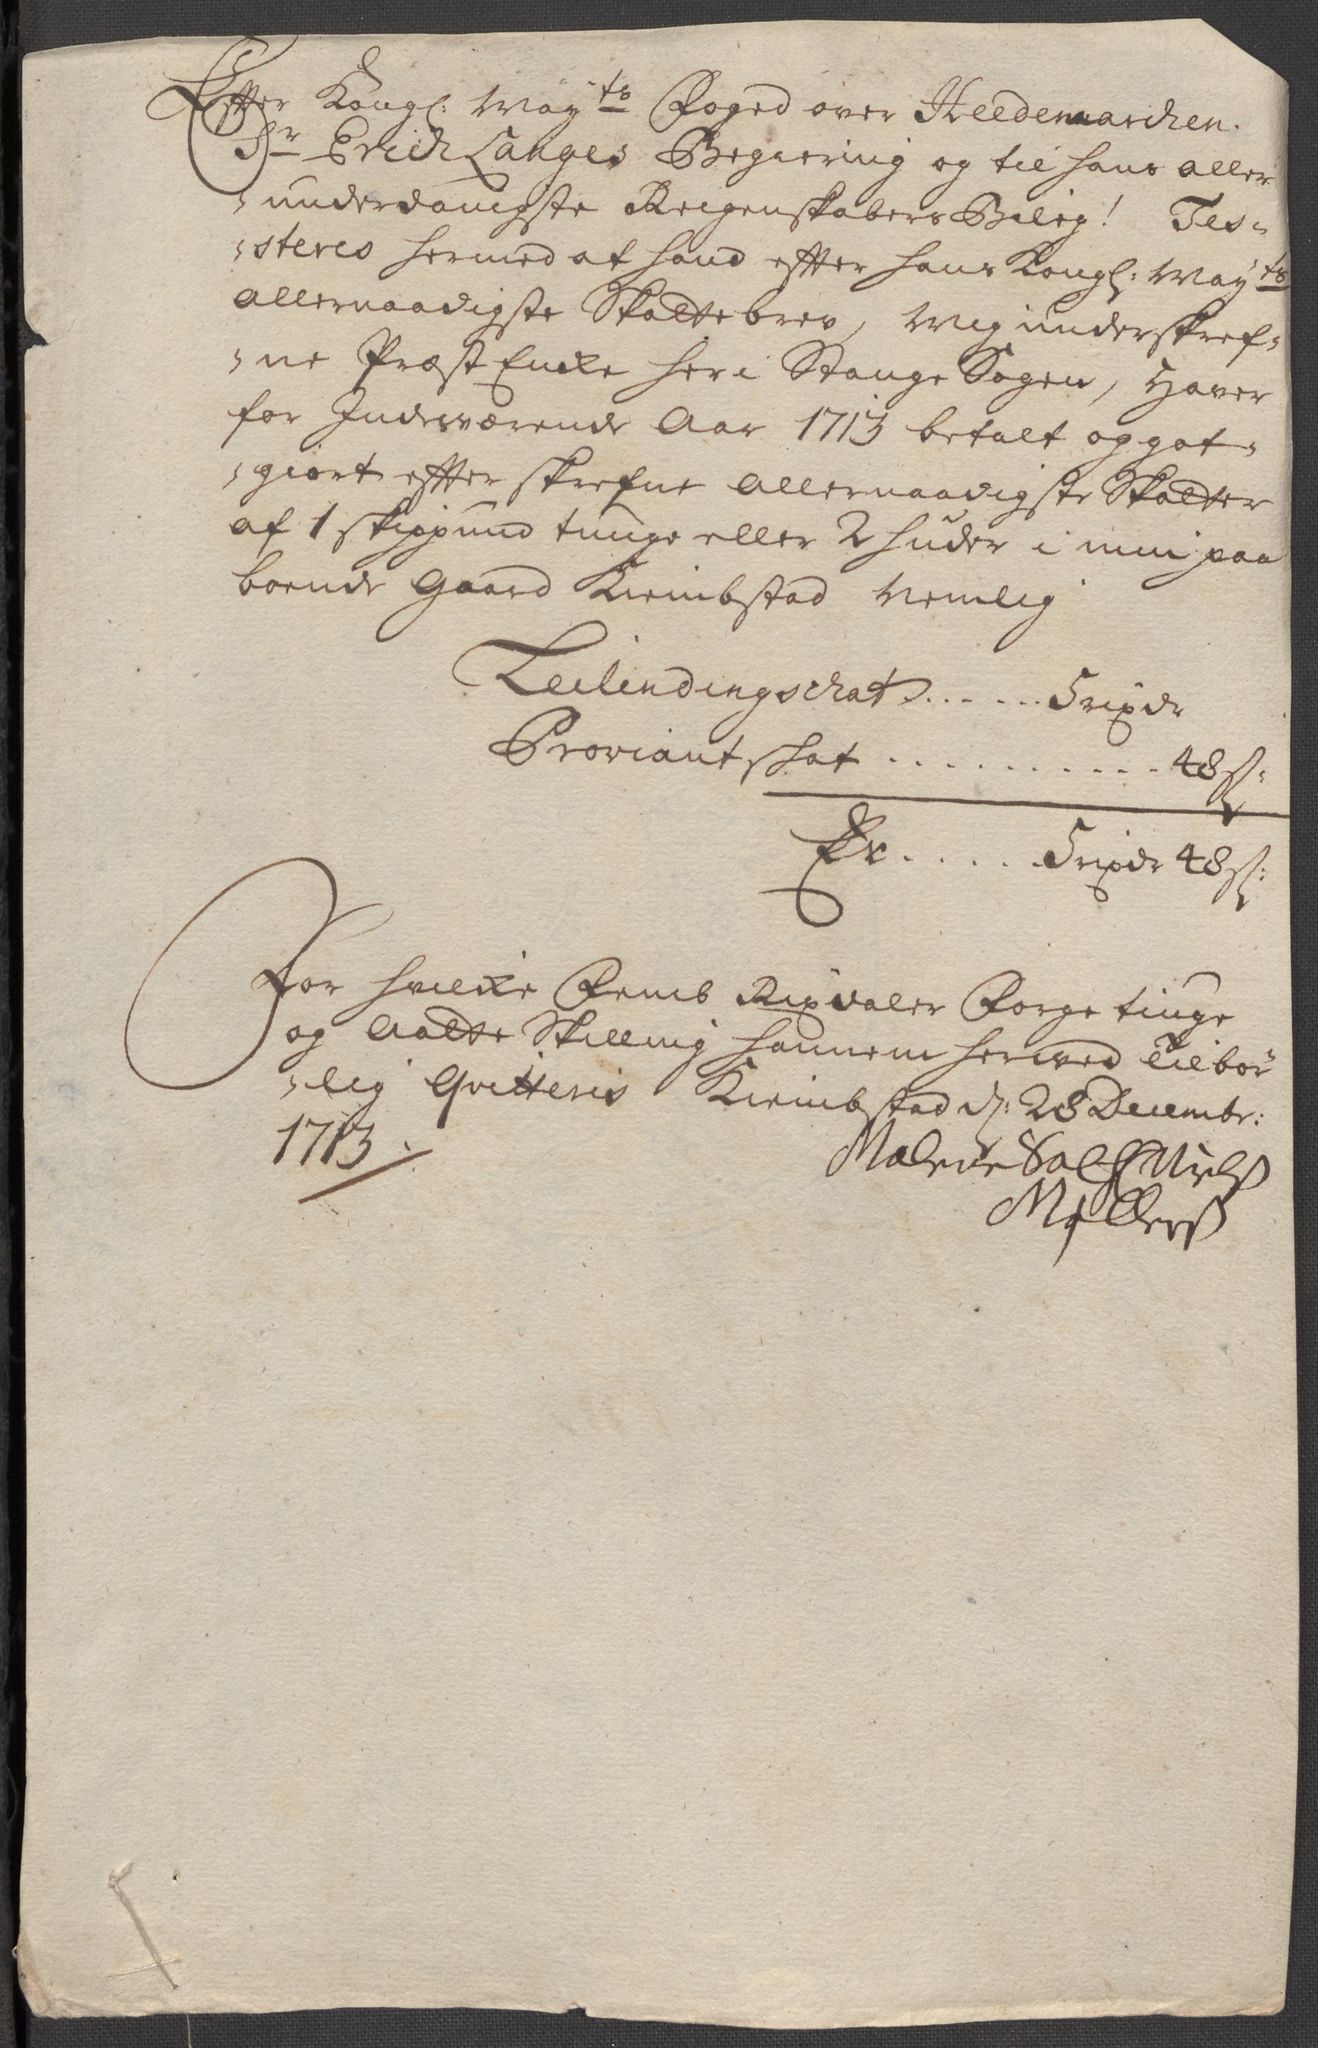 Effter Kongl: May:ts Foged over Heedemarchen.
Sr Erich Langes Begiering og til hans aller
-underdanigste Reigenskabers Bileg! Tes-
-steres hermed at hand effter hans Kongl: May:ts
allernaadigste Skattebrev, mig underskref-
-ne Præst Encke her i Stange Sogen, haver
for Indeværende Aar 1713 betalt og got-
-giort effterskrefne allernaadigste Skatter
af 1 skippund tunge eller 2 huder i min paa
boende Gaard Kiembstad Nemlig
Leilendingschat ...... 5 rixdr
Proviant skat .......... 48 s:
Er ..... 5 rixdr 48 s:
For hvilcke Femb Rixdaler Forgetiuge
og Aatte Skilling hannem herved tilbør
-lig Qvitteris Kiembstad d: 28 Decembr:
1713.
Malene Sal: Niels
Møllers